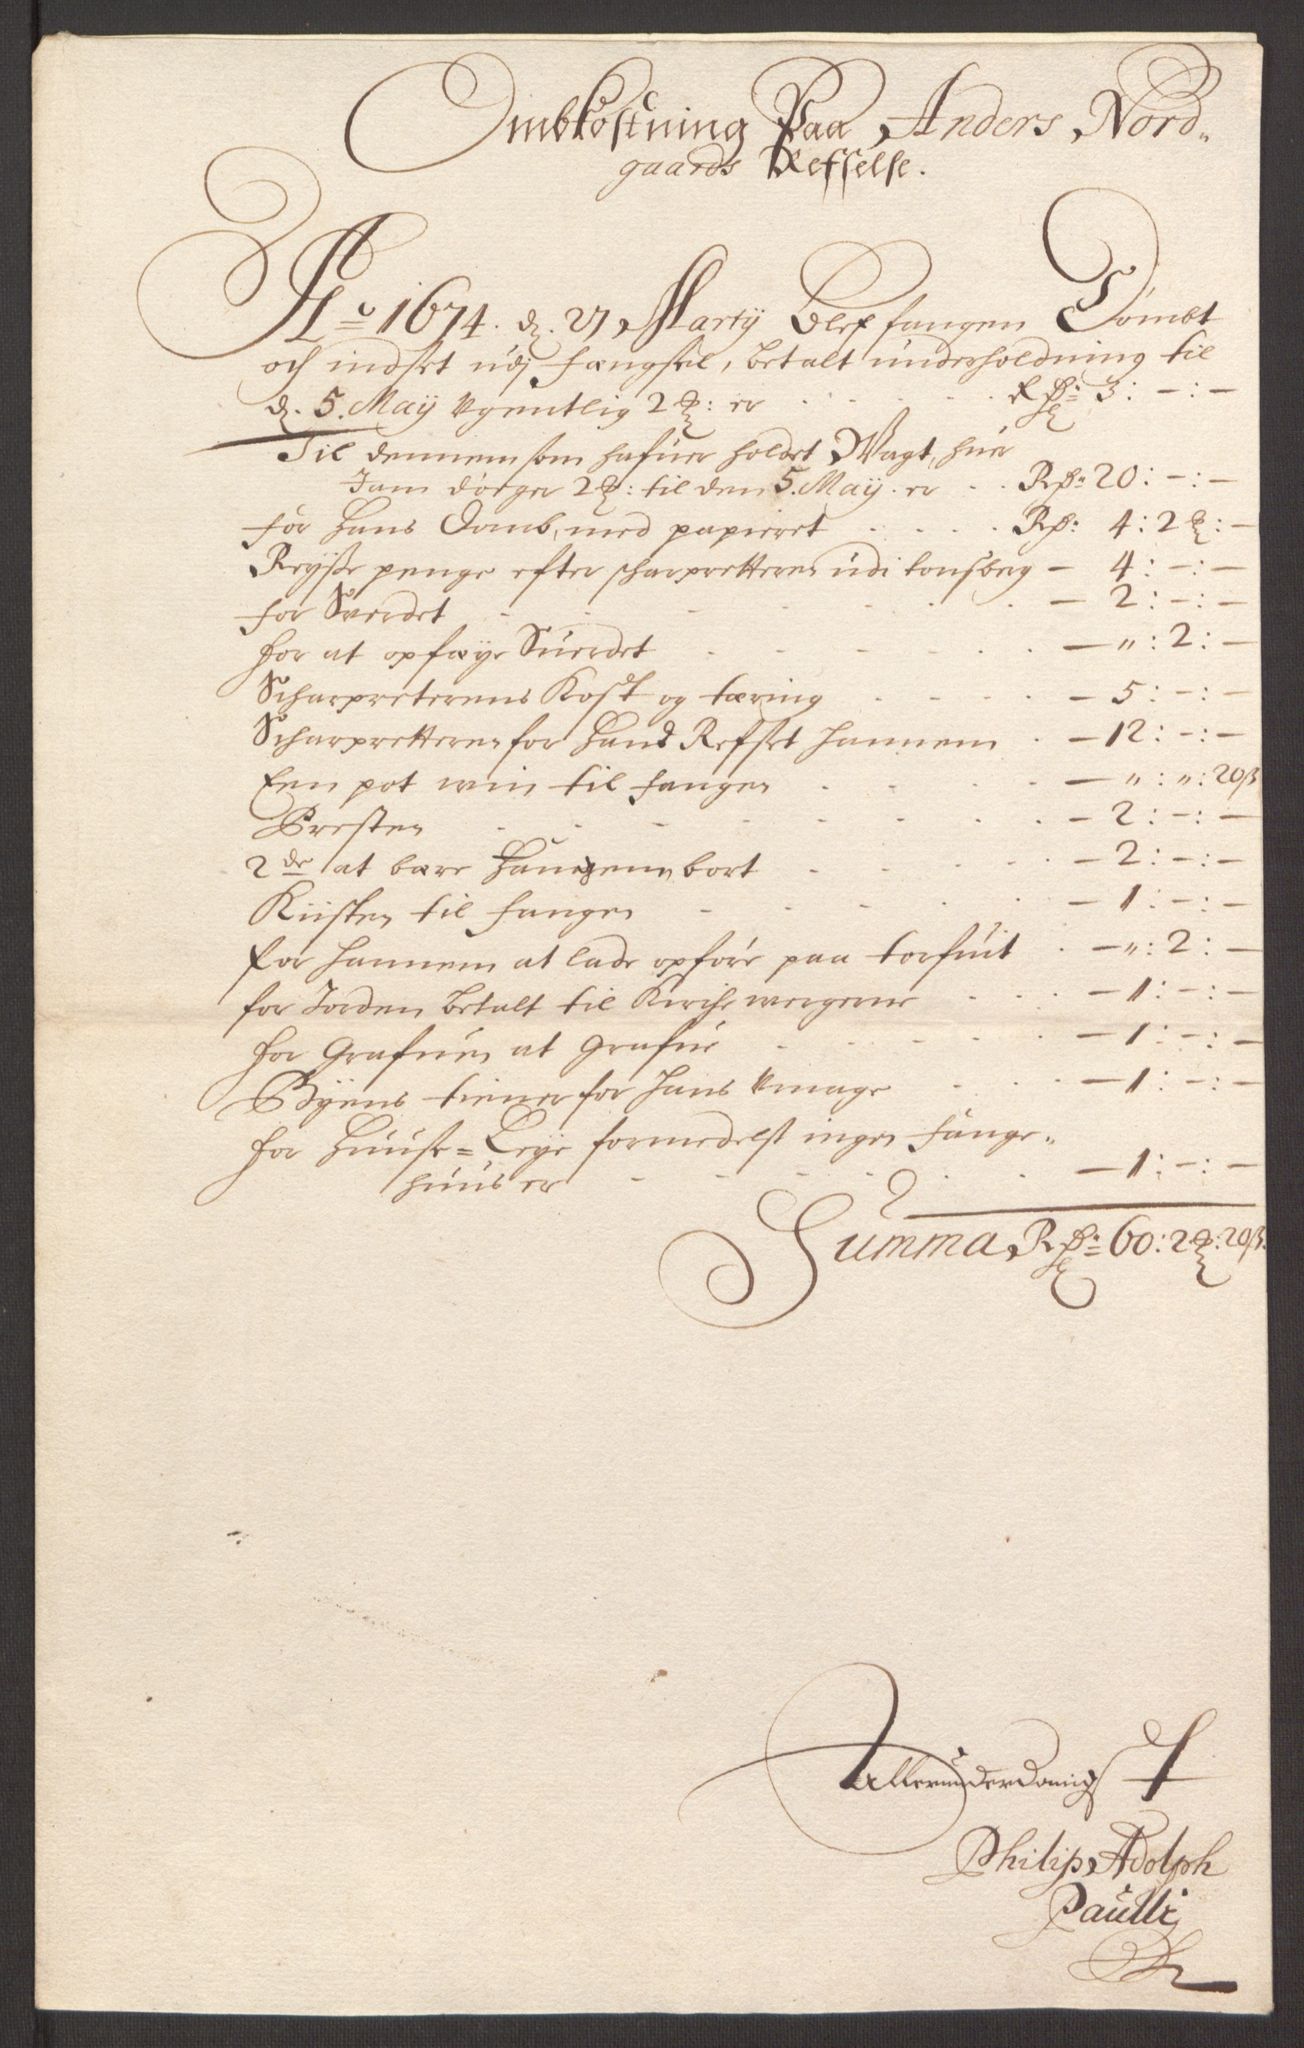 Ombkostning Paa Anders Nord-
gaards Refselse.
Ao 1674. d. 27 Martij blef fangen Dømbt
och indset udj fængsel, betalt underholdning til
d. 5. Maij Ugentlig 2 ₰: er . . . . . Rdr: 3: - : -
Til dennem som hafuer holdet Wagt, huer
Jam døger 2 ₰: til den 5. Maij. er . . Rdr: 20: - : -
for Hans Domb, med papieret . . . . Rdr: 4: 2 ₰: -
Reysse penge efter scharpretteren udi tonsberg - 4: - : -
for Sverdet . . . . . . - 2: - : -
for at opfæye Suerdet . . . . . . - " : 2: -
Scharpreterens Kost og tæring . . . . - 5: - : -
Scharpretteren for Hand Refset hannem . - 12: - : -
Een pot win til fangen . . . . . - " : " : 20 ß
Presten . . . . . . . . - 2: - : -
2de at bære Hannem bort . . . . - 2: - : -
Kiisten til fangen . . . . . . - 1: - : -
for hannem at lade opføre paa torfuit . - " : 2: -
for Jorden betalt til Kirche wergerne . . . - 1: - : -
for Grafuen at grafue . . . . . - 1: - : -
Byens tiener for hans Umage . . . - 1: - : -
for Huuse-Leye formedelst ingen fange-
huus er . . . . . . - 1: - : -
Summa Rdr: 60: 2 ₰: 20 ß.
Allerunderdanigst
Philip Adolph
Paulli